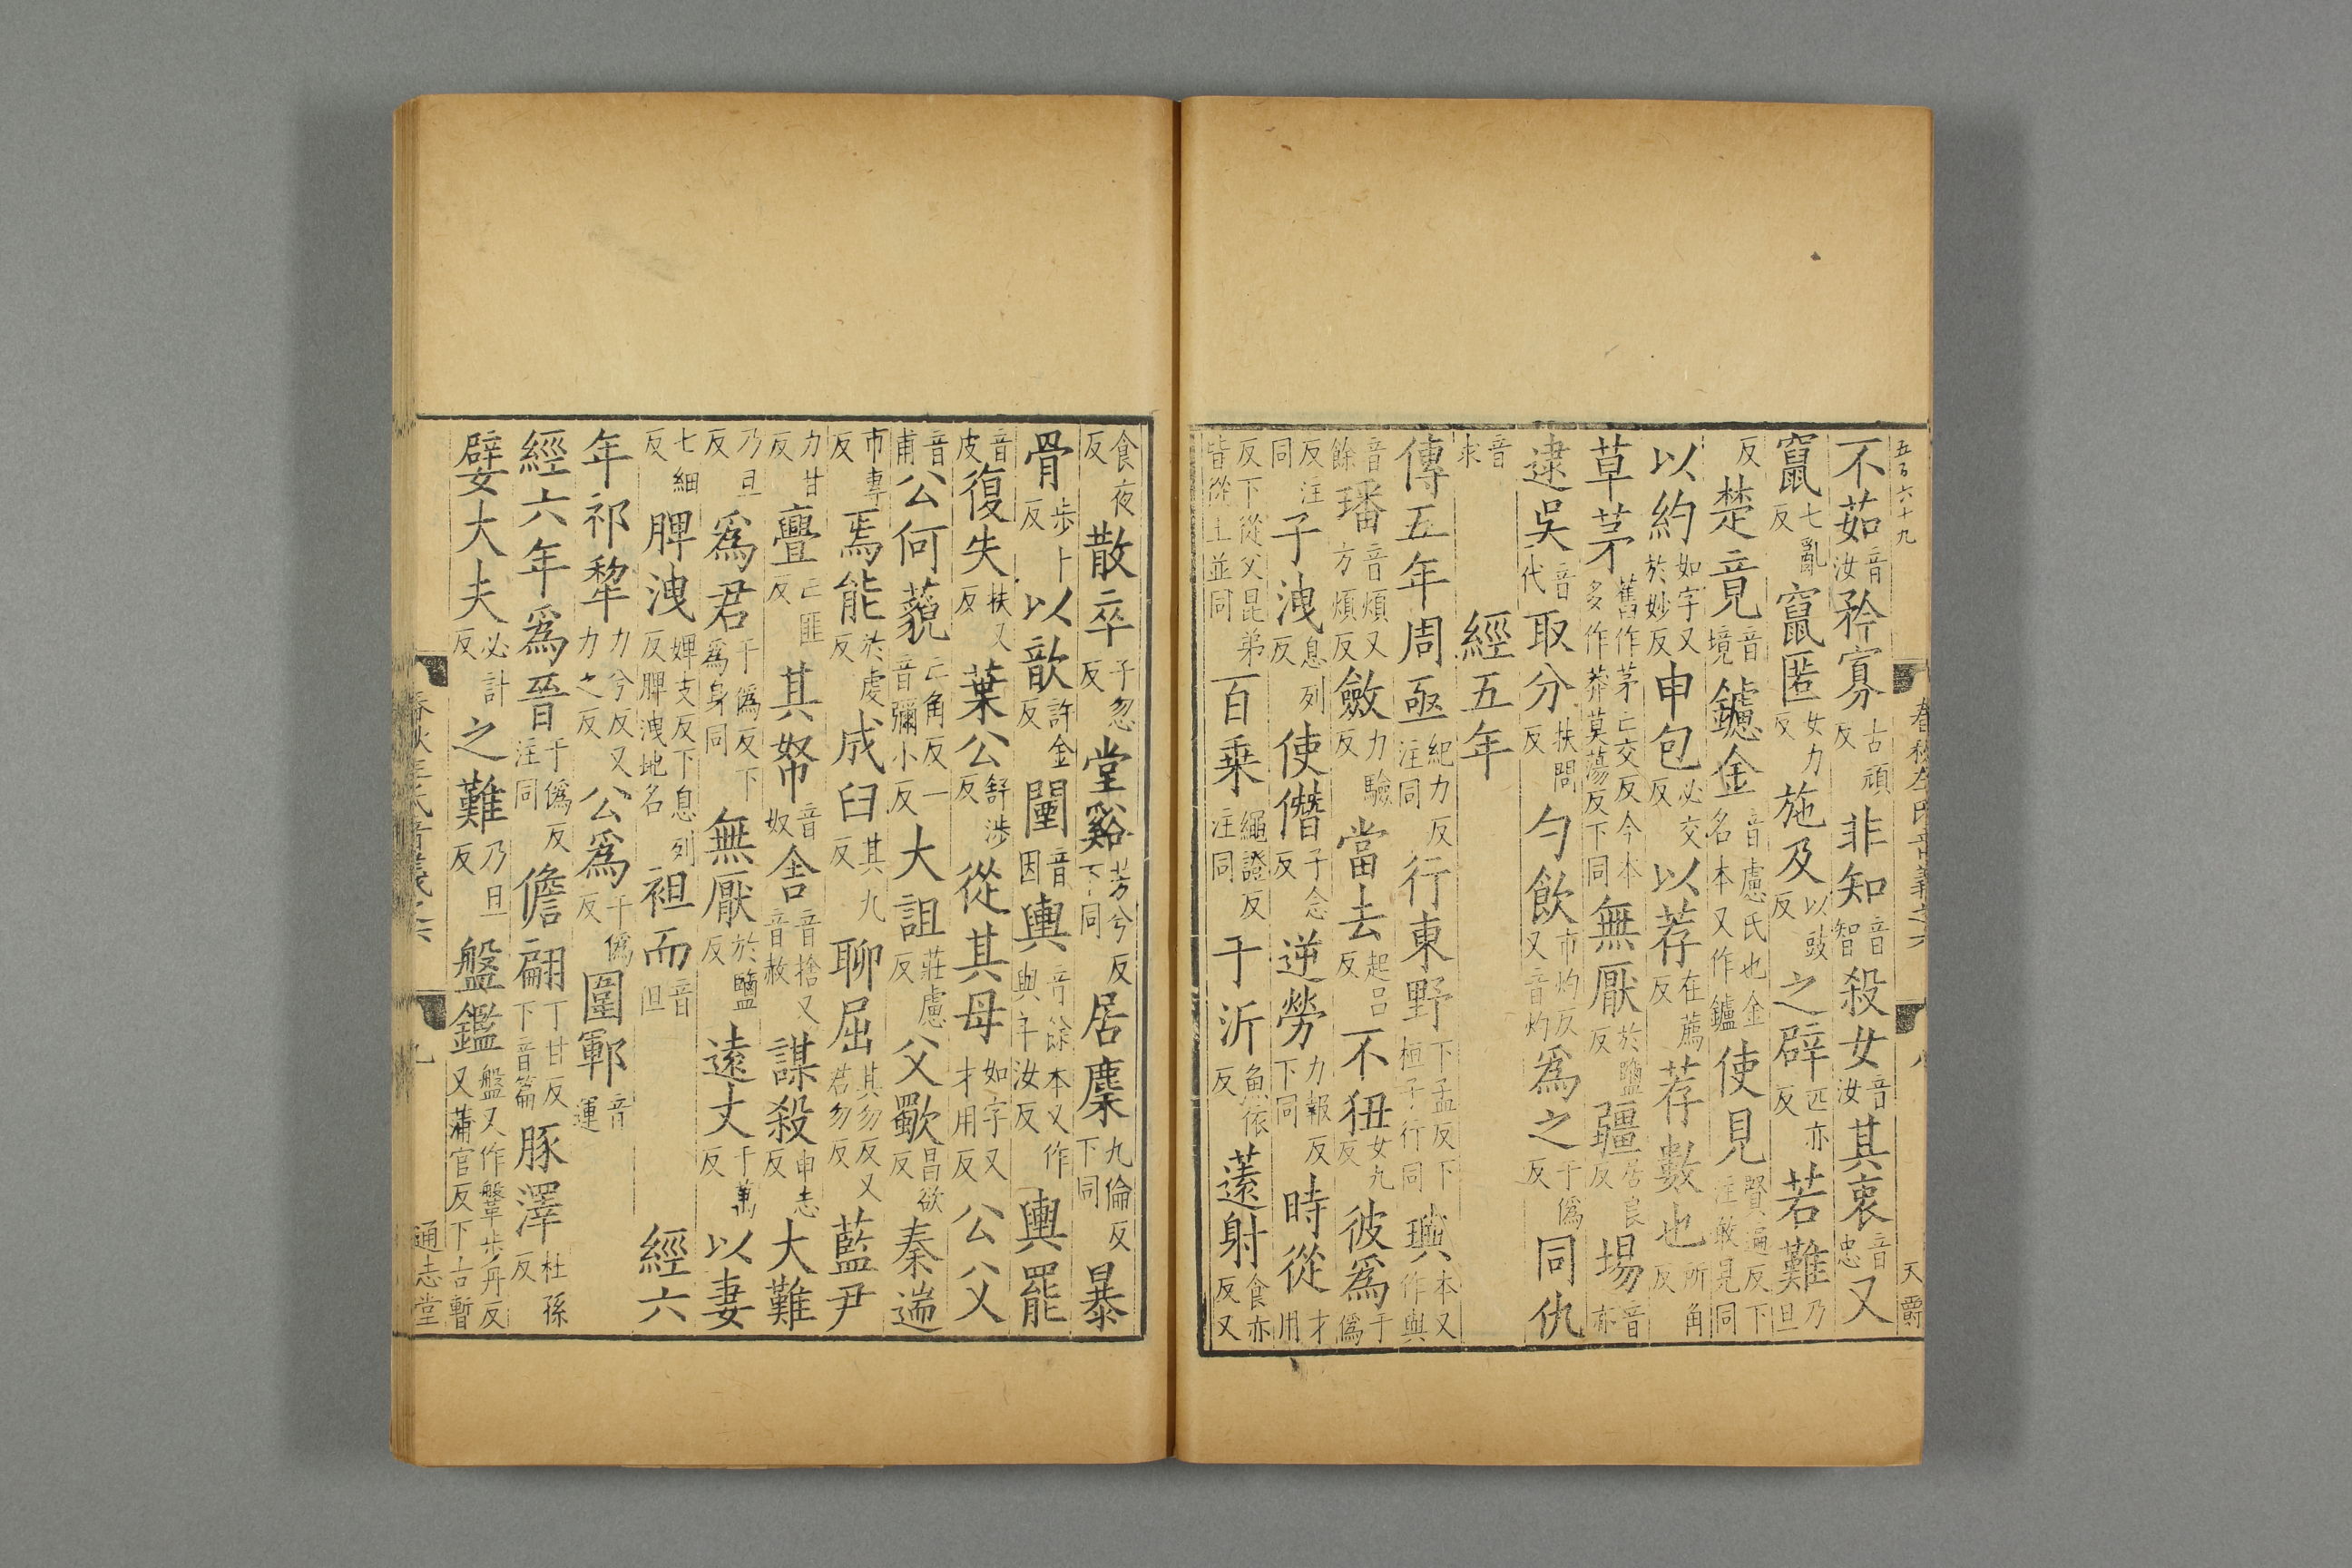 五百六十九
春秋左氏音義之六 八 天爵
不茹音汝矜寡古頑反非知音智殺女音汝其衷音忠又
竄七亂反竄匿女力反施及以豉反之辟匹亦反若難乃旦
反楚竟音境鑢金音慮氏也金名本又作鑪使見賢遍反下注敢見同
以約如字又於妙反申包必交反以荐在薦反荐數也所角反
草茅舊作茅亡交反今本多作莽莫蕩反下同無厭於鹽反疆居良反埸音亦
逮吳音代取分扶問反勺飲市灼反又音灼爲之于僞反同仇
音求 經五年
傳五年周亟紀力反注同行東野下孟反下桓子行同璵本又作與
音餘璠音煩又方煩反斂力驗反當去起呂反不狃女九反彼爲于僞
反注同子洩息列反使僭子念反逆勞力報反下同時從才用
反下從父昆弟皆從王並同百乗繩證反注同于沂魚依反薳射食亦反又
食夜反散卒子忽反堂谿芳兮反下同居麇九倫反下同暴
骨步卜反以歆許金反闉音因輿音餘本又作與年汝反輿罷
音皮復失扶又反葉公舒涉反從其母如字又才用反公父
音甫公何藐亡角反一音彌小反大詛莊慮反父歜昌欲反秦遄
市專反焉能於虔反成臼其九反聊屈其勿反又君勿反藍尹
力甘反亹亡匪反其帑音奴舍音捨又音赦謀殺申志反大難
乃旦反爲君于僞反下爲身同無厭於鹽反遠丈于萬反以妻
七細反脾洩婢支反下息列反脾洩地名袒而音但 經六
年祁犂力兮反又力之反公爲于僞反圍鄆音運
經六年爲晉于僞反注同儋翩丁甘反下音篇豚澤杜孫反
嬖大夫必計反之難乃旦反盤鑑盤又作鞶步丹反又蒲官反下古暫
春秋左氏音義之六 九 通志堂